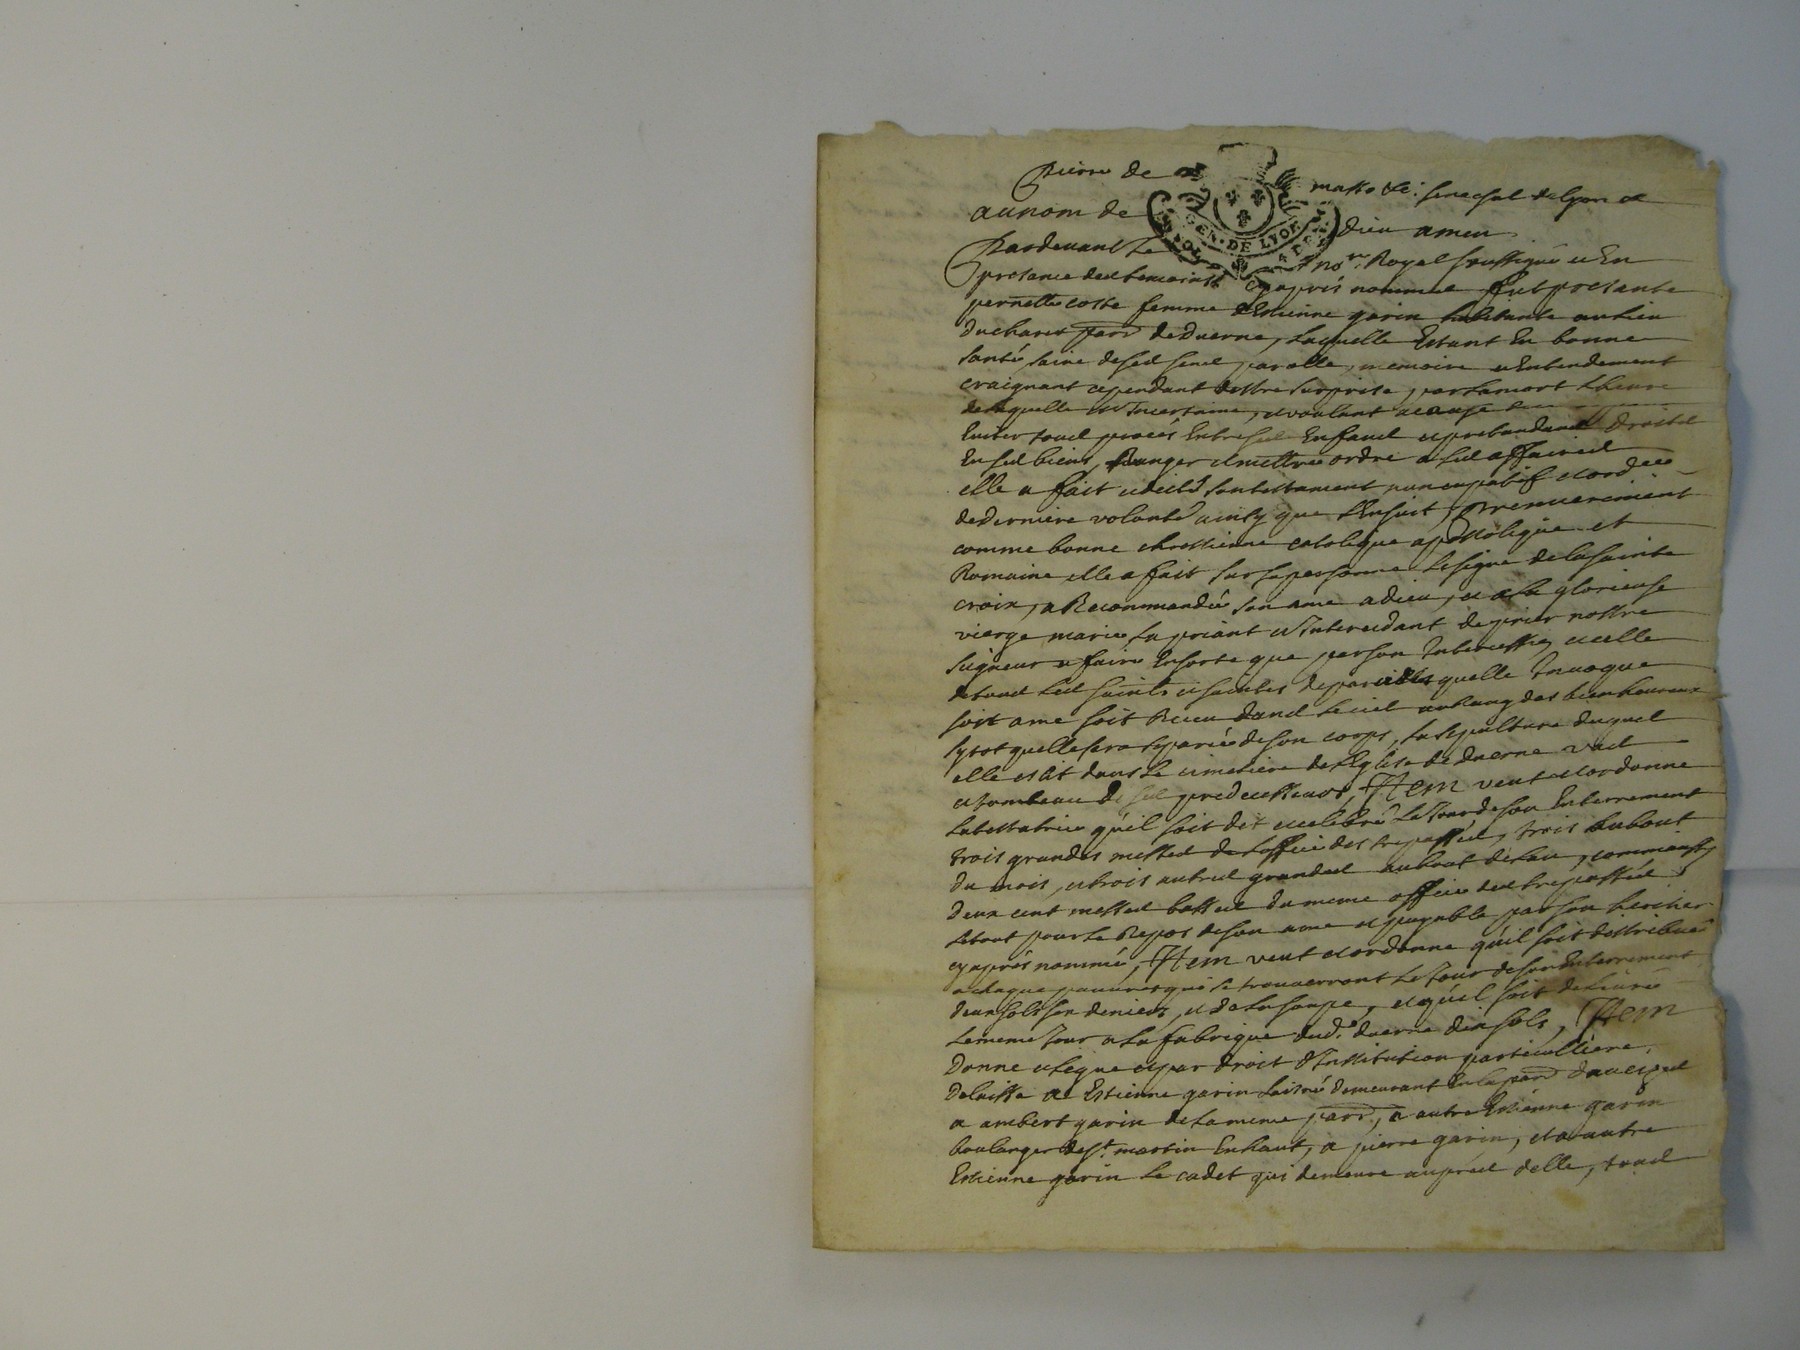 Pierre de masso &c. senechal de Lyon &
GEN · DE LYON
au nom de dieu amen
Pardevant Le nore. Royal soussigné & En
presance des temoins cy apres nommes fut presante
pernette coste femme d'Estienne garin habitante au lieu
du charet parr de duerne, Laquelle Estant En bonne
santé, saine de ses sens, parolle, memoire & Entendement
craignant cependant destre surprise, par la mort Lheure
de laquelle est Incertaine, & voulant
Eviter tous procés Entre ses Enfans & pretendans droits
En ses biens, Ranger & mettre ordre a ses affaires
elle a fait son testament nuncupatif & ord
de derniere volonté ainsy que s'Ensuit, Premierement
comme bonne chrestienne catolique apostolique et
Romaine elle a fait sur sa personne Le signe de la sainte
croix, a Recommandée son ame a dieu, & a La glorieuse
vierge marie La priant & Intercedant de prier nostre
seigneur & faire Ensorte que par son Intercession & celle
de tous Les saints & saintes de paradis quelle Invoque
soit ame soit Receu dans Le ciel au Rang des bienheureux
sytot quelle sera separée de son corps, La sepulture duquel
elle eslit dans Le cimetiere de L'Eglise de duerne
& tombeau de ses predecesseurs, Item veut & ordonne
La testatrice qu'il soit dit & celebré Le Jour de son Enterrement
trois grandes messes de Loffice des trepassés, trois au bout
du mois, & trois autres grandes au bout de Lan, comme aussy
deux cent messes basses du meme office des trepassés
Le tout pour Le Repos de son ame & payable par son heritier
cy apres nommé, Item veut & ordonne qu'il soit distribué
a chaque pauvres qui se trouverront Le Jour de son Enterrement
deux sols six deniers, & de La soupe, & qu'il soit delivré
Le meme Jour a La fabrique dud. duerne dix sols, Item
Donne & Legue & par droit d'Institution particulliere,
Delaisse a Estienne garin Laisné demeurant En La parr daveize
a ambert garin de La meme parr, a autre Estienne garin
boulanger de st. martin Enhaut, a pierre garin, & a autre
Estienne garin Le cadet qui demeure aupres delle, tous